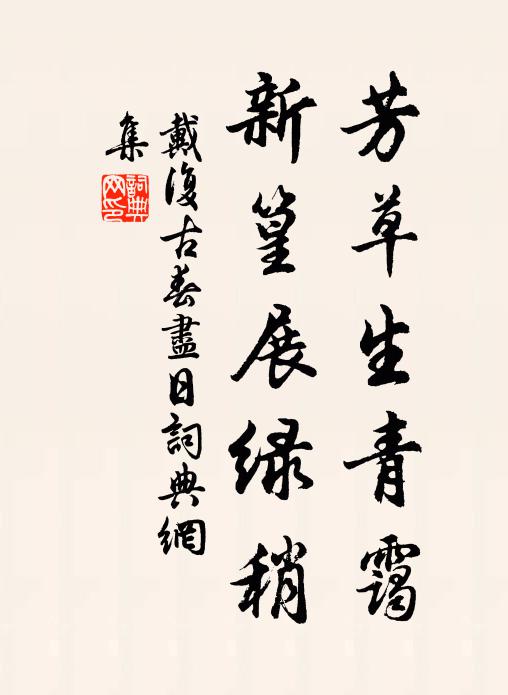 芳草生青靄
新篁展绿稍
戴復古春盡日詞典網
集
詞典网印